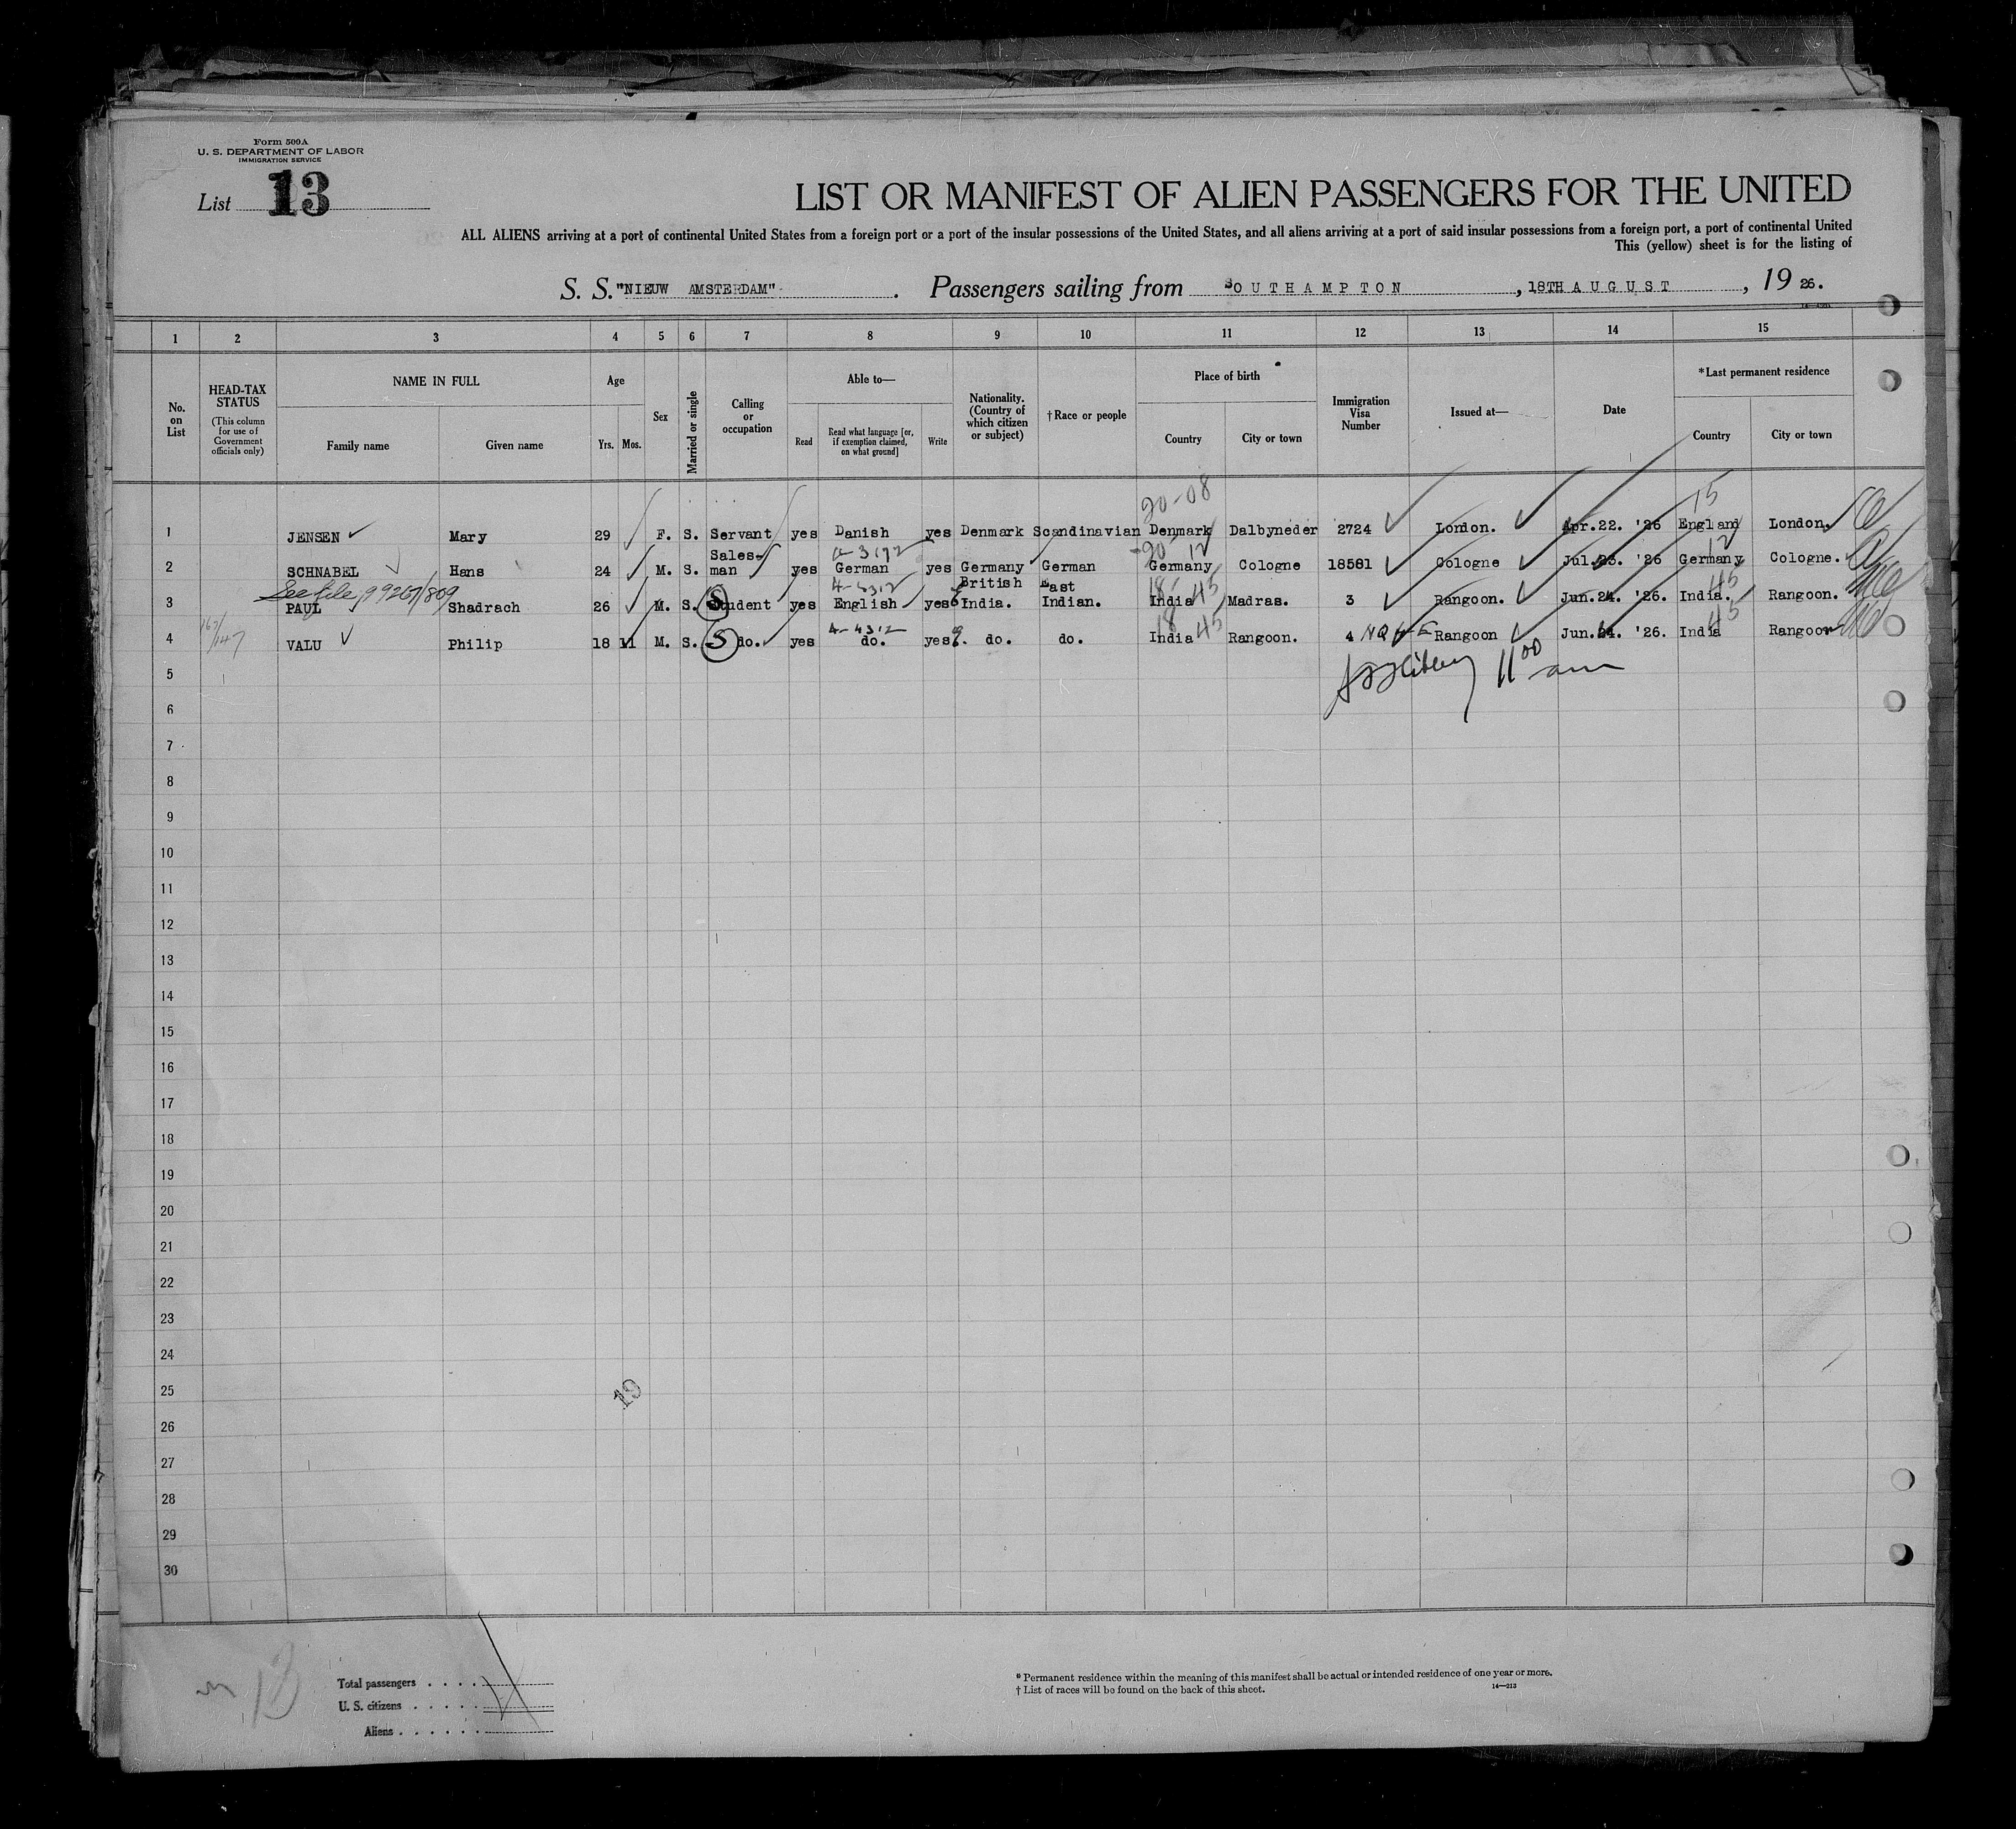 Form 500A
U. S. DEPARTMENT OF LABOR
IMMIGRATION SERVICE
List 13
LIST OR MANIFEST OF ALIEN PASSENGERS FOR THE UNITED
ALL ALIENS arriving at a port of continental United States from a foreign port or a port of the insular possessions of the United States, and all aliens arriving at a port of said insular possessions from a foreign port, a port of continental United
This (yellow) sheet is for the listing of
S. S. "NIEUW AMSTERDAM" . Passengers sailing from SOUTHAMPTON , 18TH AUGUST , 19 26.
1 2 3 4 5 6 7 8 9 10 11 12 13 14 15
No. on List
HEAD-TAX STATUS
(This column for use of Government officials only)
NAME IN FULL
Family name Given name
Age
Yrs. Mos.
Sex
Married or single
Calling or occupation
Able to—
Read
Read what language [or, if exemption claimed, on what ground]
Write
Nationality. (Country of which citizen or subject)
†Race or people
Place of birth
Country City or town
Immigration Visa Number
Issued at—
Date
*Last permanent residence
Country City or town
20-08 15
1 JENSEN Mary 29 F. S. Servant yes Danish yes Denmark Scandinavian Denmark Dalbyneder 2724 London. Apr.22. '26 England London.
20 12 12
2 SCHNABEL Hans 24 M. S. Salesman yes German yes Germany German Germany Cologne 18581 Cologne Jul.23. '26 Germany Cologne.
See file 99267/809 4-4312 18 45 45
3 PAUL Shadrach 26 M. S. Student yes English yes British India. East Indian. India Madras. 3 Rangoon. Jun.24. '26. India. Rangoon.
4-4312 18 45 45
4 VALU Philip 18 11 M. S. S do. yes do. yes do. do. India Rangoon. 4 NQ Rangoon Jun.24. '26. India Rangoon
11 00 am
5
6
7
8
9
10
11
12
13
14
15
16
17
18
19
20
21
22
23
24
25
19
26
27
28
29
30
Total passengers
U. S. citizens
Aliens
* Permanent residence within the meaning of this manifest shall be actual or intended residence of one year or more.
† List of races will be found on the back of this sheet.
14—213